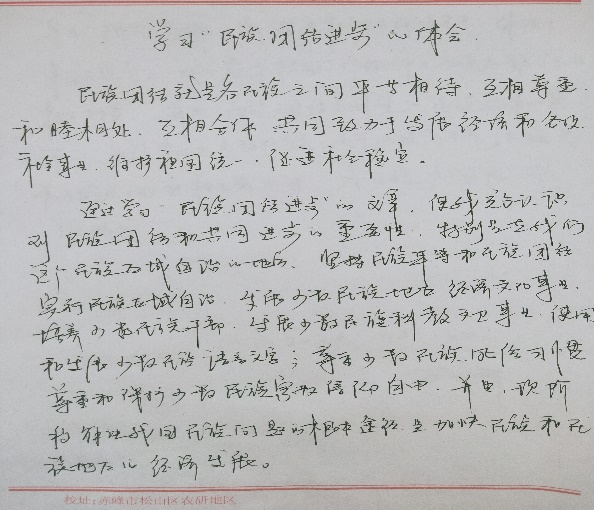 学习“民族团结进步”心体会
民族团结就是各民族之间平等相待、互相尊重、
和睦相处、互相合作、共同致力于发展经济和各项
社会事业,维护祖国统一,促进社会稳定。
通过学习“民族团结进步”的文章,使我充分认识
到民族团结和共同进步的重要性,特别是在我们
这个民族区域自治的地方。坚持民族平等和民族团结
实行民族区域自治,发展少数民族地区经济文化事业,
培养少数民族干部,发展少数民族科教文卫事业,使用
和发展少数民族语言文字;尊重少数民族风俗习惯
尊重和保护少数民族宗教信仰自由。并且,现阶
我国民族问题的根本途径是加快民族和民
族地区的经济发展。
校址:赤峰市松山区农研地区